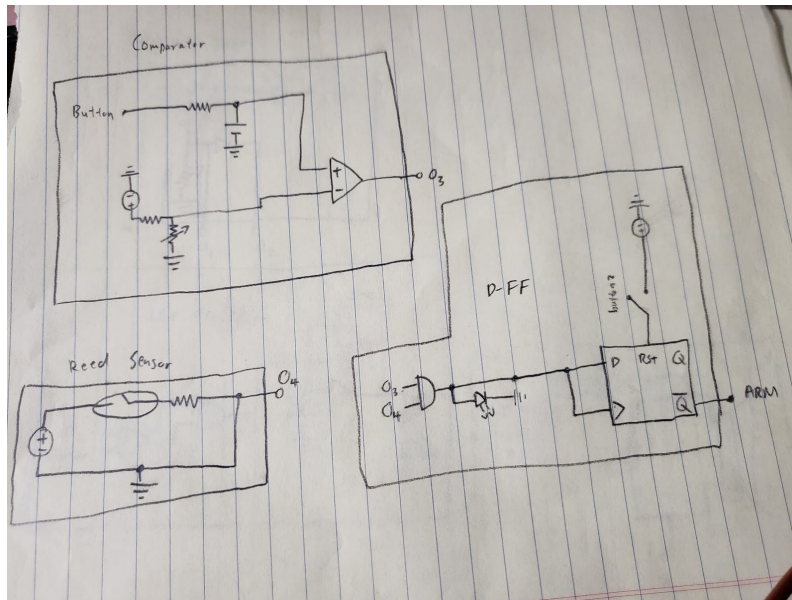 Comparator
Button
+
-
O3
D-FF
button2
Reed Sensor
O4
O3
O4
D RST Q
Q̅
ARM